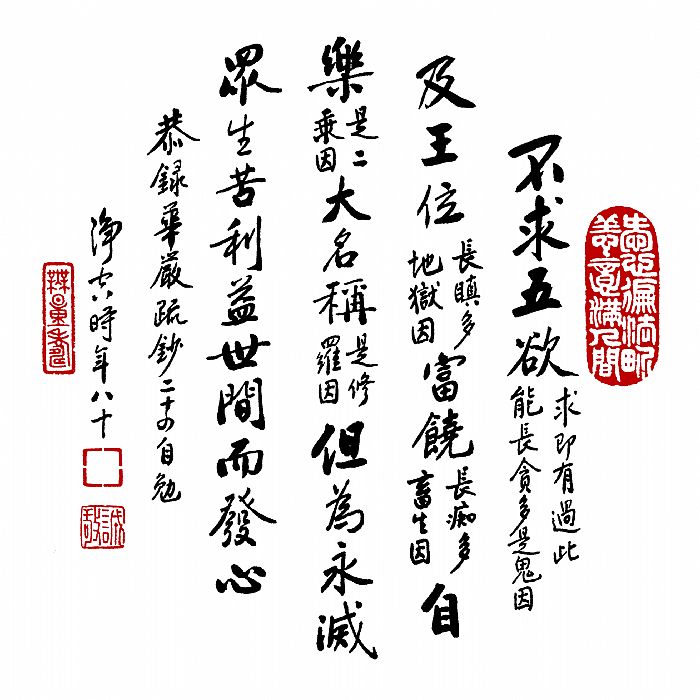 愛心徧法界
善意滿人間
不求五欲
求即有過此
能長貪多是鬼因
及王位
長瞋多
地獄因
富饒
長痴多
畜生因
自
樂
是二
乘因
大名稱
是修
羅因
但為永滅
眾生苦利益世間而發心
恭録華嚴疏鈔二十四自勉
淨空時年八十
誠敬
無量壽